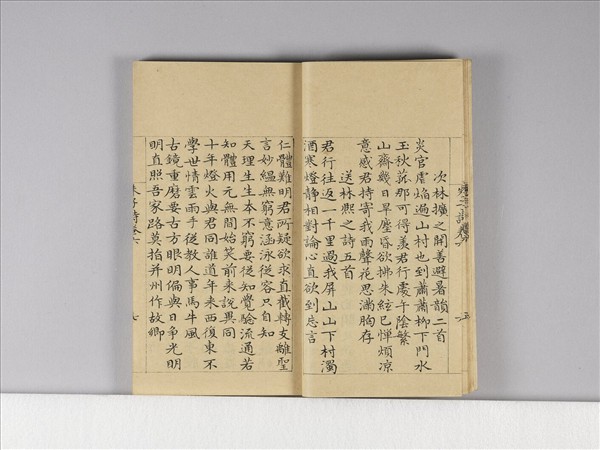 次林擴之開善避暑韻二首
炎官虐焰過山村也到蕭蕭柳下門水
玉秋菰那可得羨君行處午陰繁
山齋幾日旱塵昏欲拂朱絃已憚煩凉
意感君持寄我雨聲花思滿胸存
送林熙之詩五首
君行往返一千里過我屏山山下村濁
酒寒燈靜相對論心直欲到忘言
仁體難明君所疑欲求直截轉支離聖
言妙縕無窮意涵泳從容只自知
天理生生本不窮要從知覺驗流通若
知體用元無間始笑前來說異同
十年燈火與君同誰道年來西復東不
學世情雲雨手從教人事馬牛風
古鏡重磨要古方眼明偏與日爭光明
明直照吾家路莫指并州作故鄉